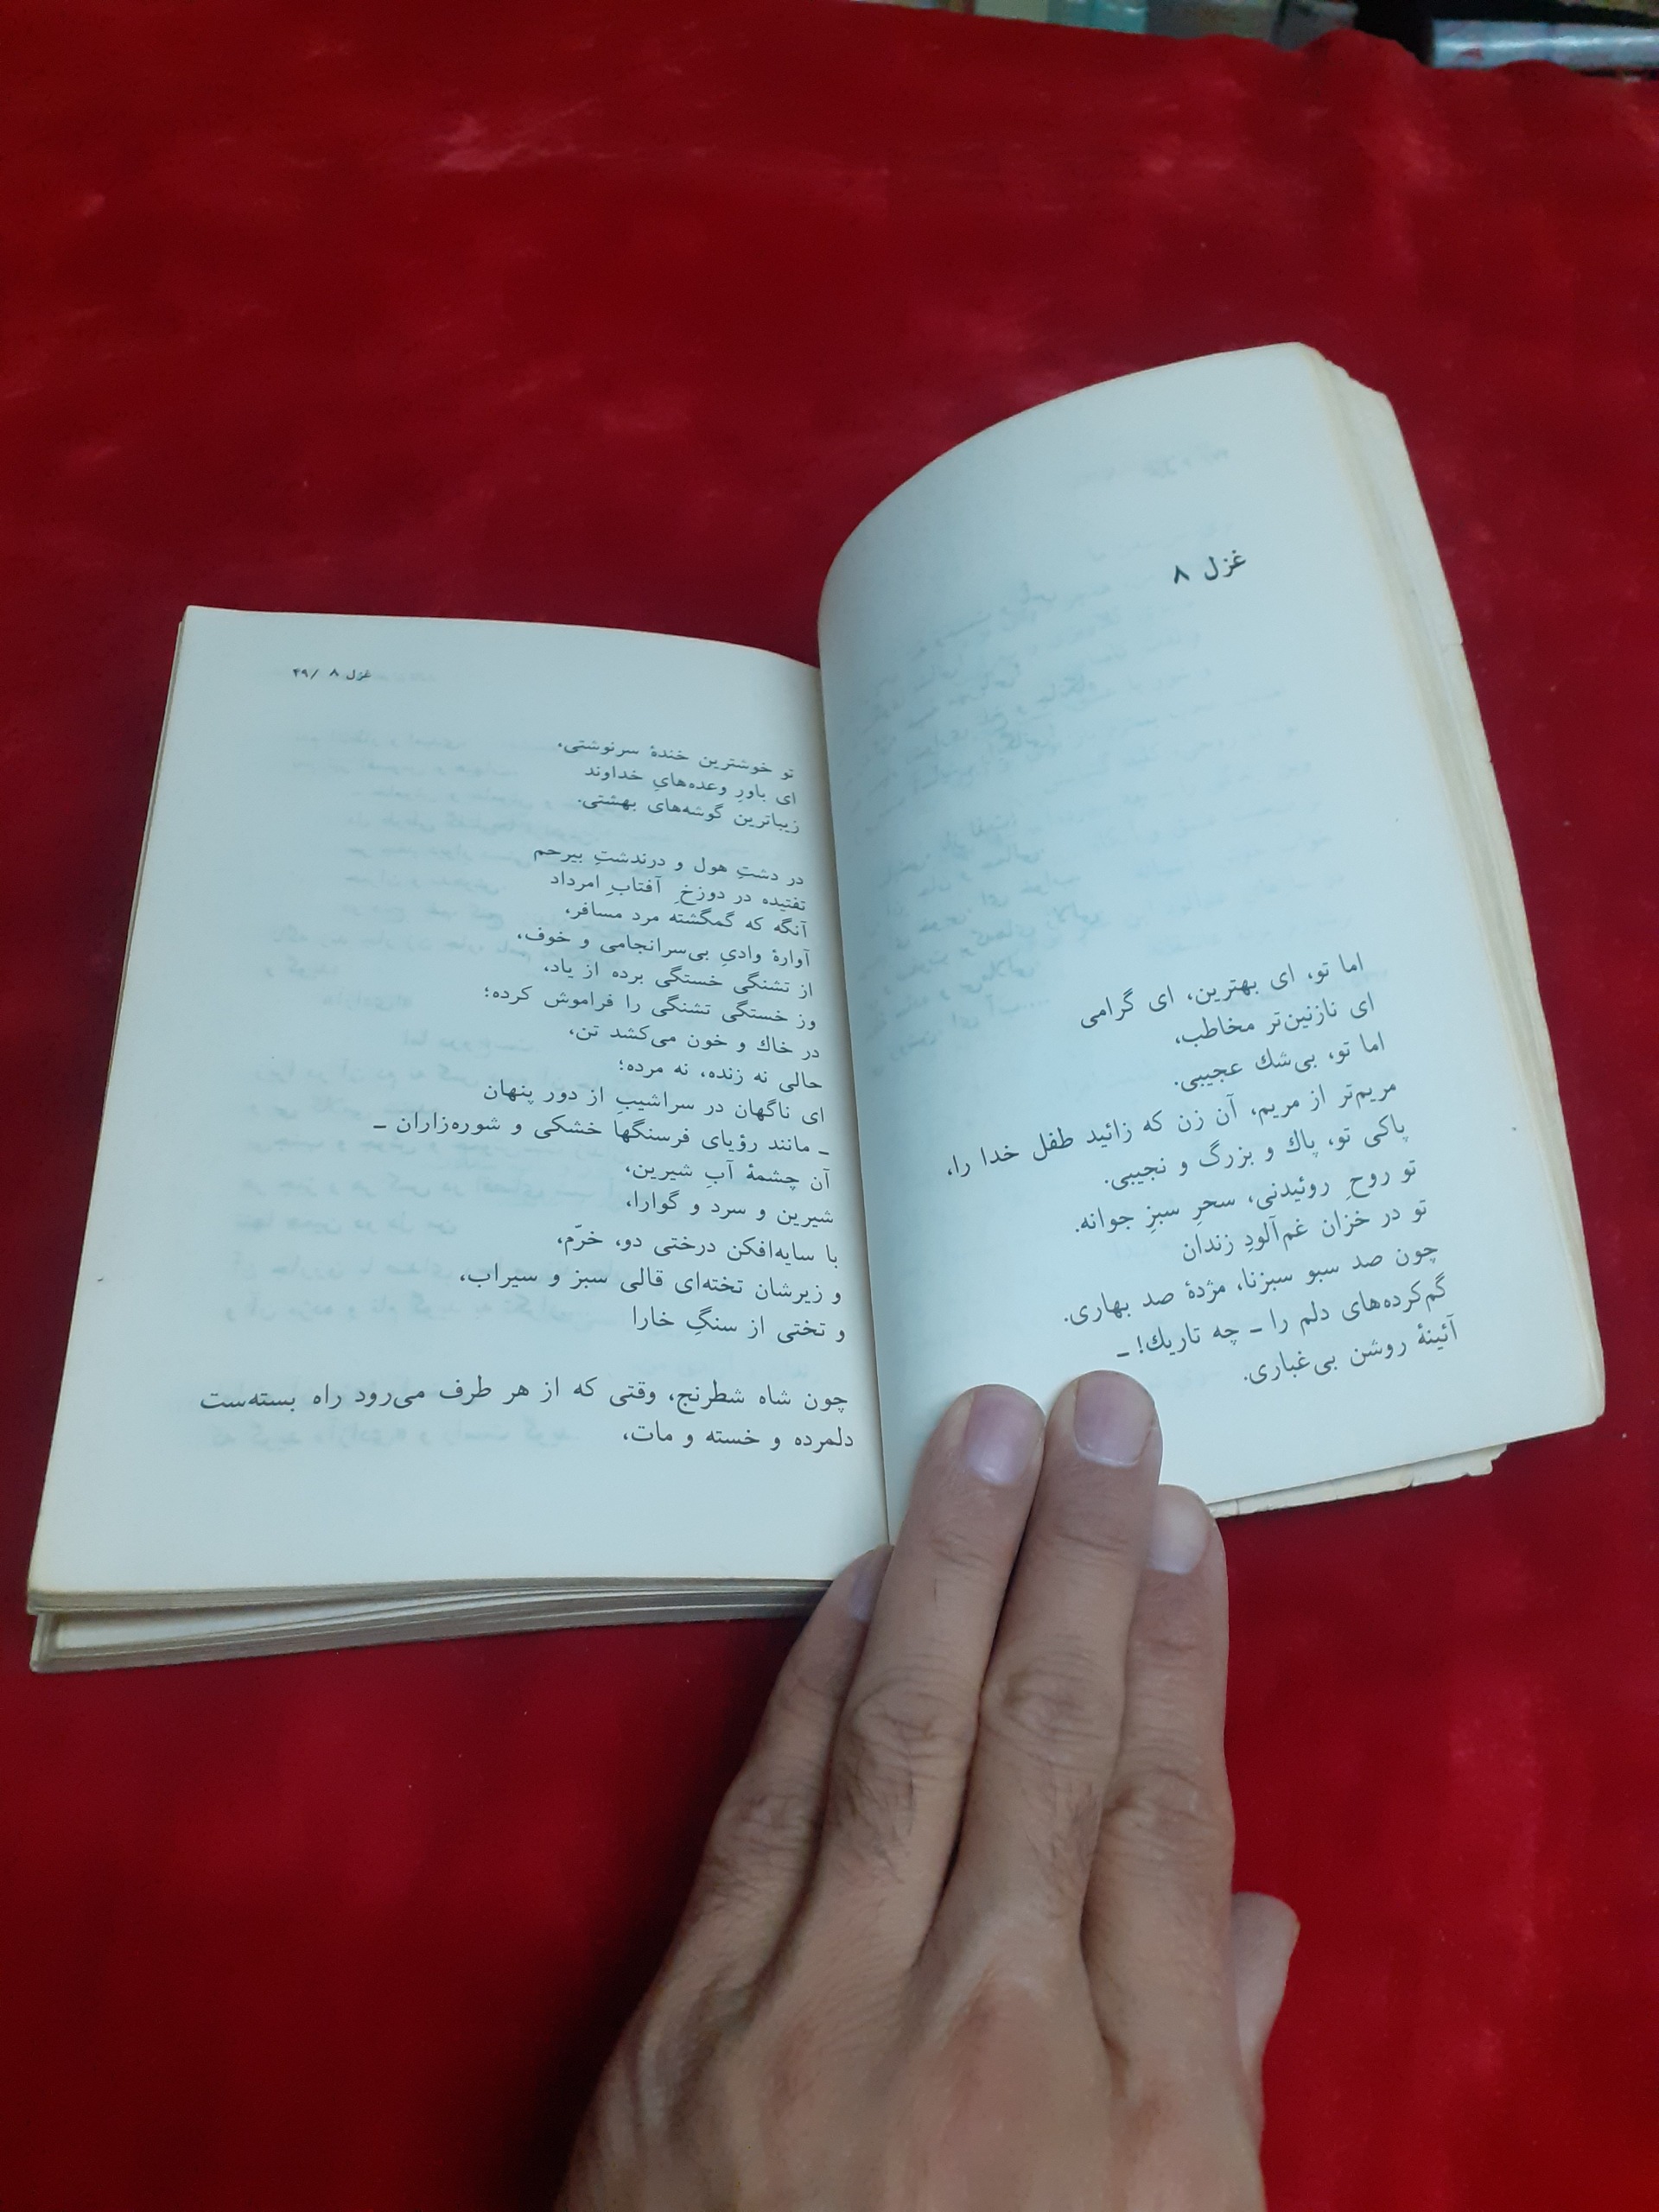 غزل ۸
اما تو، ای بهترین، ای گرامی
ای نازنین‌تر مخاطب،
اما تو، بی‌شك عجیبی.
مریم‌تر از مریم، آن زن که زائید طفل خدا را،
پاکی تو، پاك و بزرگ و نجیبی.
تو روحِ روئیدنی، سحرِ سبزِ جوانه.
تو در خزان غم‌آلودِ زندان
چون صد سبو سبزنا، مژدهٔ صد بهاری.
گم‌کرده‌های دلم را ـ چه تاریك! ـ
آئینهٔ روشن بی‌غباری.
غزل ۸ /۴۹
تو خوشترین خندهٔ سرنوشتی،
ای باورِ وعده‌هایِ خداوند
زیباترین گوشه‌های بهشتی.
در دشتِ هول و درندشتِ بیرحم
تفتیده در دوزخِ آفتابِ امرداد
آنگه که گمگشته مرد مسافر،
آوارهٔ وادیِ بی‌سرانجامی و خوف،
از تشنگی خستگی برده از یاد،
وز خستگی تشنگی را فراموش کرده؛
در خاك و خون می‌کشد تن،
حالی نه زنده، نه مرده؛
ای ناگهان در سراشیبِ از دور پنهان
ـ مانند رؤیای فرسنگها خشکی و شوره‌زاران ـ
آن چشمهٔ آبِ شیرین،
شیرین و سرد و گوارا،
با سایه‌افکن درختی دو، خرّم،
و زیرشان تخته‌ای قالی سبز و سیراب،
و تختی از سنگِ خارا
چون شاه شطرنج، وقتی که از هر طرف می‌رود راه بسته‌ست
دلمرده و خسته و مات،